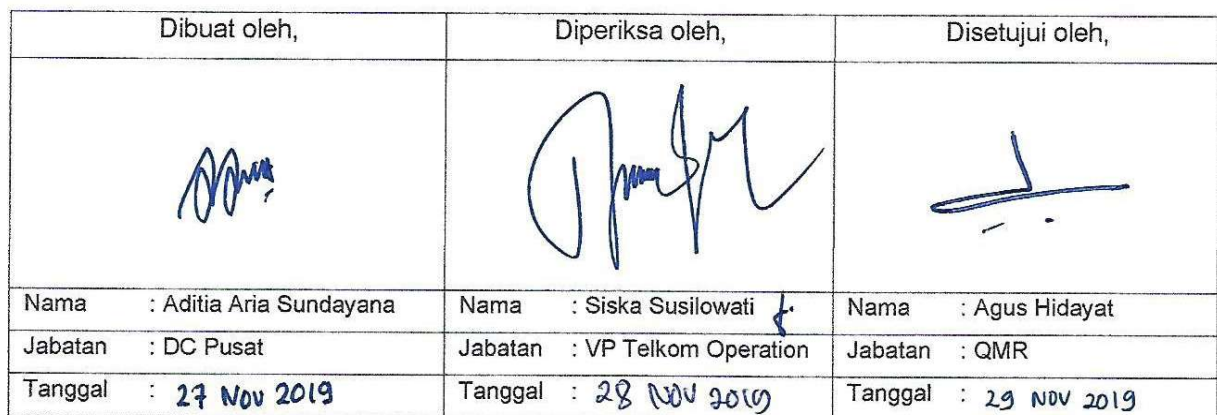 Dibuat oleh,
Diperiksa oleh,
Disetujui oleh,
Nama : Aditia Aria Sundayana
Nama : Siska Susilowati
Nama : Agus Hidayat
Jabatan : DC Pusat
Jabatan : VP Telkom Operation
Jabatan : QMR
Tanggal : 27 Nov 2019
Tanggal : 28 NOV 2019
Tanggal : 29 NOV 2019